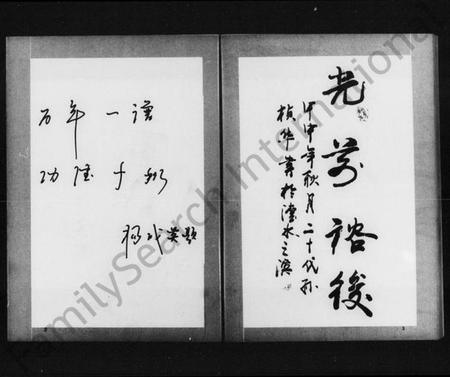 百年一谱
功千秋
题
光前裕後
甲申年秋月二十代孙
桢华書於潦水之滨
FamilySearch International